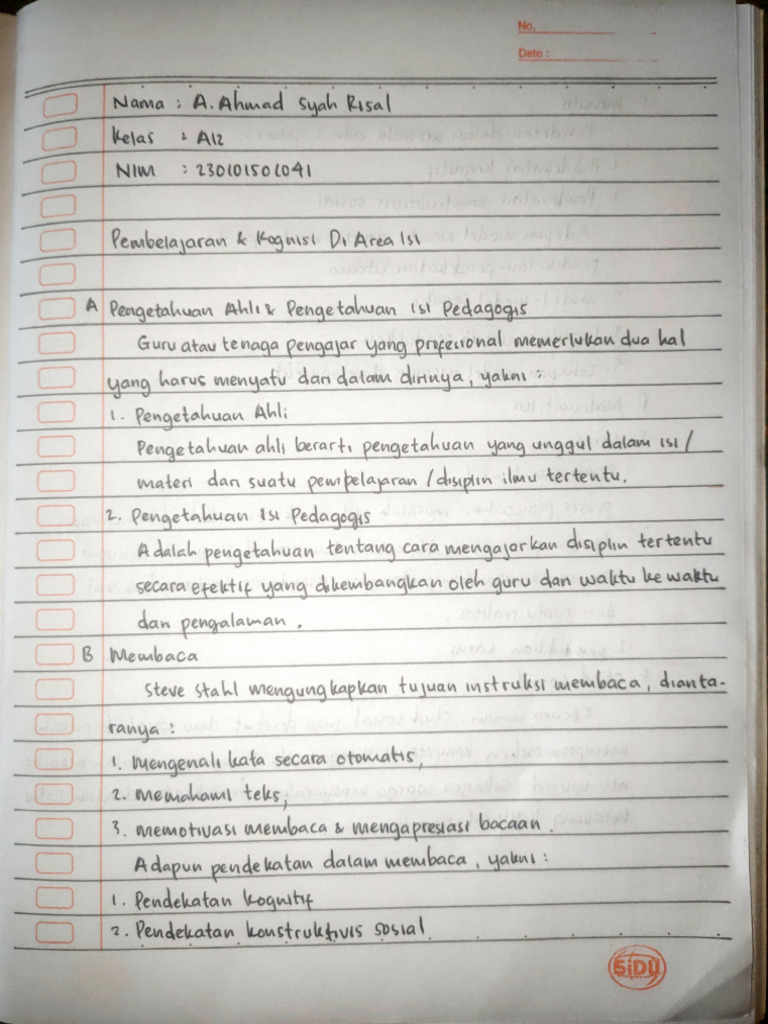 No.
Date :
Nama : A. Ahmad Syah Risal
Kelas : A12
NIM : 230101501041
Pembelajaran & Kognisi Di Area Isi
A Pengetahuan Ahli & Pengetahuan Isi Pedagogis
Guru atau tenaga pengajar yang profesional memerlukan dua hal
yang harus menyatu dari dalam dirinya, yakni :
1. Pengetahuan Ahli
Pengetahuan ahli berarti pengetahuan yang unggul dalam isi /
materi dari suatu pembelajaran / disiplin ilmu tertentu.
2. Pengetahuan Isi Pedagogis
Adalah pengetahuan tentang cara mengajarkan disiplin tertentu
secara efektif yang dikembangkan oleh guru dari waktu ke waktu
dan pengalaman.
B Membaca
Steve Stahl mengungkapkan tujuan instruksi membaca, dianta-
ranya :
1. Mengenali kata secara otomatis,
2. Memahami teks,
3. Memotivasi membaca & mengapresiasi bacaan.
Adapun pendekatan dalam membaca, yakni :
1. Pendekatan kognitif
2. Pendekatan konstruktivis sosial
SiDU